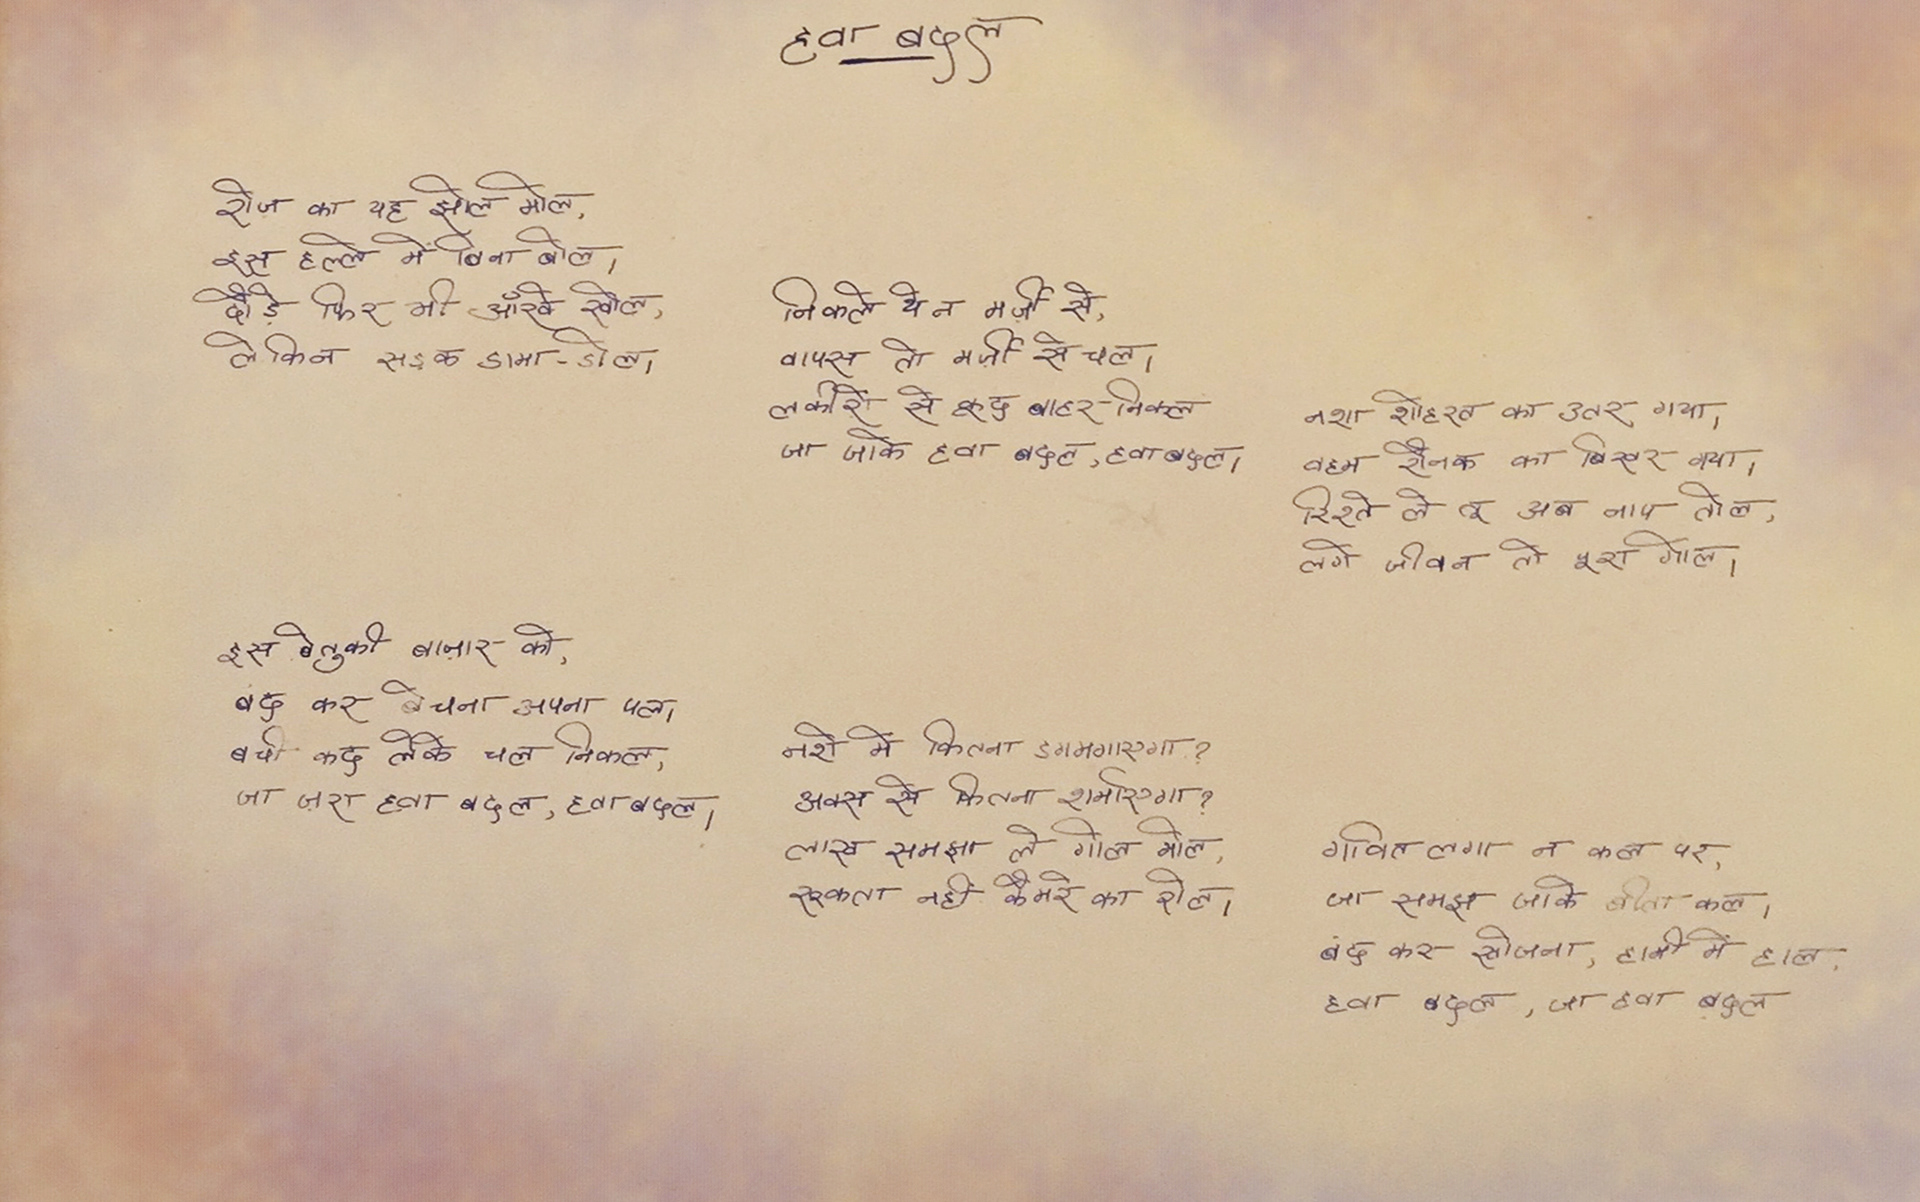 हवा बदल
रोज का यह झोल मोल,
इस हल्ले में बिना बोल।
दौड़े फिर भी आँखे खोल,
लेकिन सड़क डामा-डोल।
निकले थे न मर्ज़ी से,
वापस तो मर्ज़ी से चल।
लकीरों से कूद बाहर निकल
जा जाके हवा बदल, हवा बदल।
नशा शोहरत का उतर गया,
वहम रौनक का बिखर गया।
रिश्ते ले तू अब नाप तोल,
लगे जीवन तो पूरा गोल।
इस बेतुकी बाज़ार को,
बंद कर बेचना अपना पल।
बची कद्र लेके चल निकल,
जा ज़रा हवा बदल, हवा बदल।
नशे में कितना डगमगाएगा?
अक्स से कितना शर्माएगा?
लाख समझा ले गोल मोल,
रुकता नहीं कैमरे का रोल।
गणित लगा न कल पर,
जा समझ जाके बीता कल।
बंद कर खोजना, हामी में हाल,
हवा बदल, जा हवा बदल